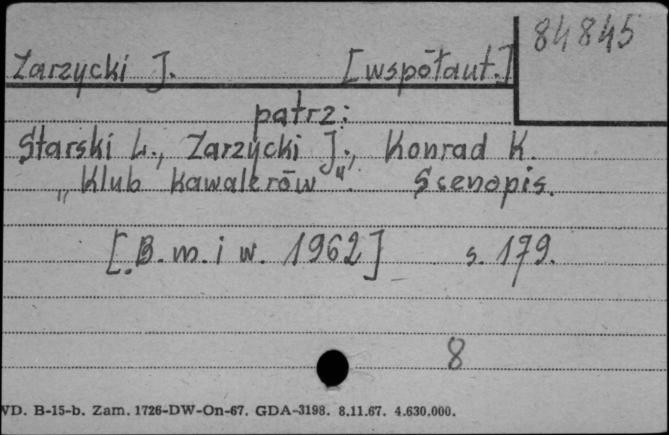 84845
Zarzycki J. [współaut.]
patrz:
Starski L., Zarzycki J., Konrad K.
„Klub kawalerów". Scenopis.
[B.m. i w. 1962] s. 179.
8
VD. B-15-b. Zam. 1726-DW-On-67. GDA-3198. 8.11.67. 4.630.000.